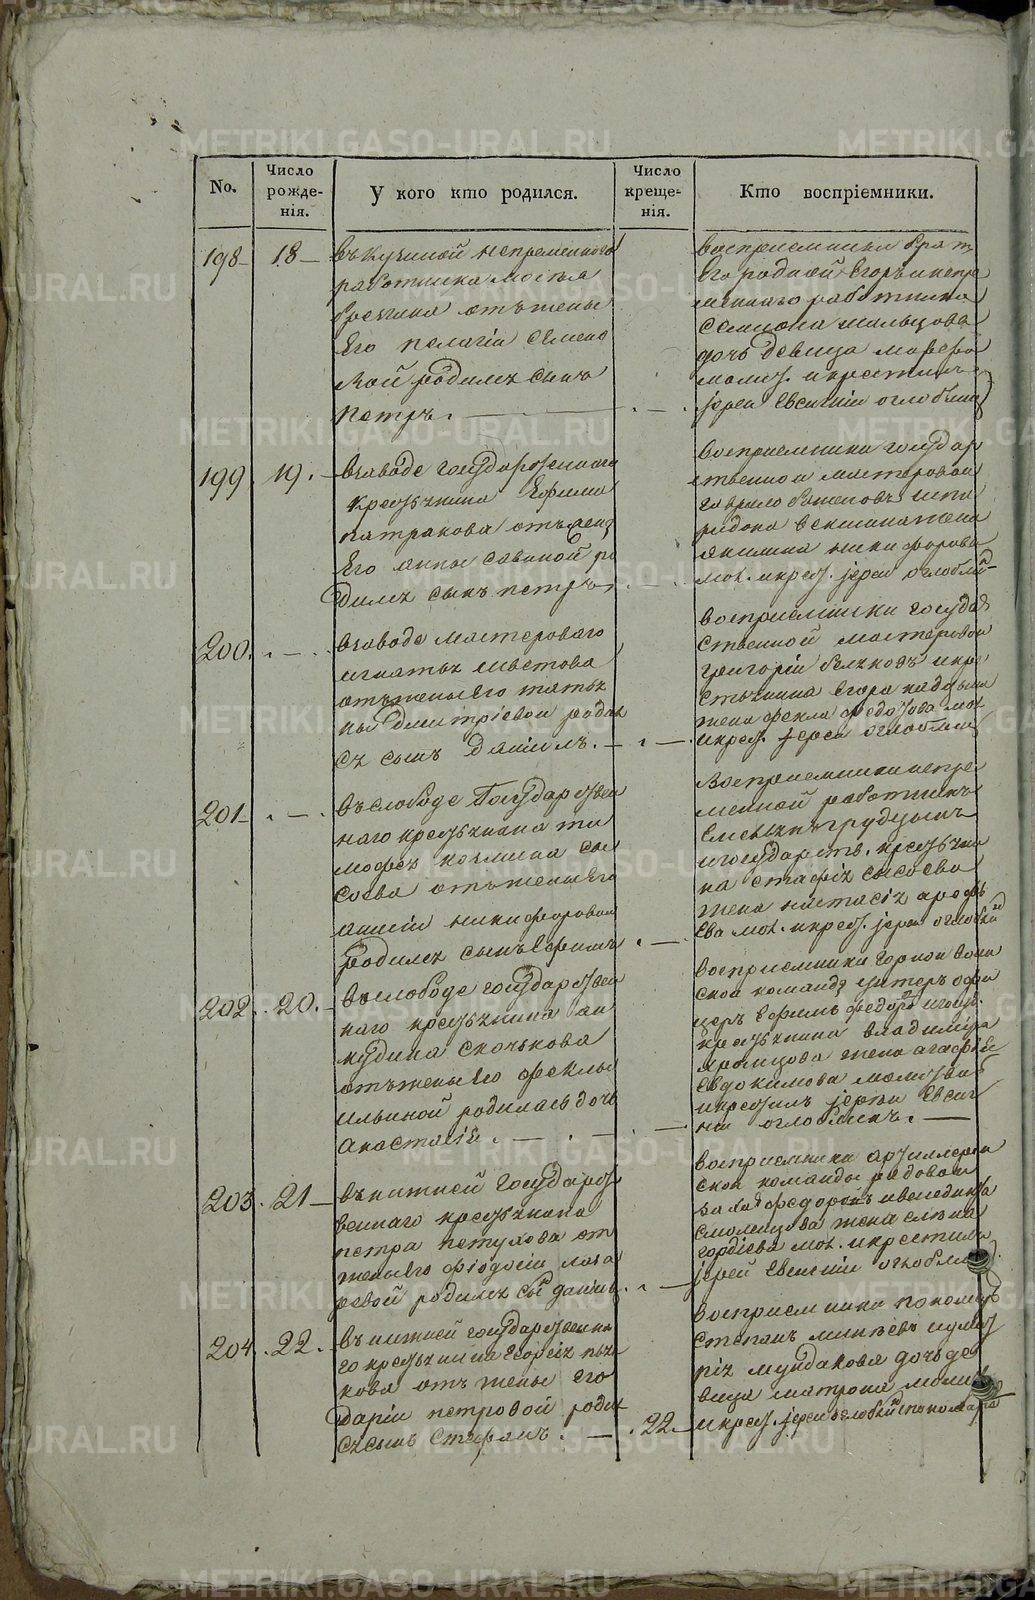 METRIKI.GASO-URAL.RU
No.
Число рожде-нія.
У кого кто родился.
Число креще-нія.
Кто воспріемники.
198 18
въ Кучиной непременнаго
работника
отъ жены
Его пелагіи семено
вой родился сынъ
петръ.
воспріемники братъ
Его родной Егоръ и непре
меннаго работника
семиона мальцова
дочь девица марфа
молит. и крестилъ
іереи Евсигнiи оглоблинъ
199 19.
взаводе государственнаго
крестьянина Ефима
патракова отъ жены
Его анны савиной ро
дился сынъ петръ
воспріемники государ
ственной мастеровои
гаврило
жена
акилина никифорова
мол. и крест. іереи оглоблин
200.
взаводе мастероваго
игнатья шестова
отъ жены Его татья
ны дмитріевои родил
ся сынъ даніилъ.
воспріемники государ
ственной мастеровои
григорій бѣлковъ и кре
стьянина Егора
жена фекла федотова мол.
и крест. іереи оглоблин
201
въ слободе Государствен
наго крестьянина ти
мофея козмина сы
соева отъ жены Его
никифоровои
родился сынъ Ефимъ
воспріемники непре
менной работникъ
и государств. крестьяни
на Естафія сысоева
жена настасія арефь
Ева мол. и крест. іереи оглоблин
202. 20.
въ слободе государствен
наго крестьянина ан
кудина скочкова
отъ жены Его феклы
ильиной родилась дочь
анастасія.
воспріемники горнои воин
скои команды унтеръ офи
церъ Ефимъ федоровъ и госуд.
крестьянина владиміра
жена агафія
Евдокимова молитвов
и крестилъ іереи Евсиг
ни оглоблинъ.
203. 21
въ нижней государст
веннаго крестьянина
петра петухова от
жены Его фіодосіи лаза
ревой родился сы даніилъ.
воспріемники артиллерій
скои команды рядовои
федоровъ и
жена елена
гордіева мол. и крестилъ
іерей Евсигнiи оглоблин
204. 22.
въ нижней государственна
го крестьянина георгія пья
кова отъ жены Его
даріи петровой роди
ся сынъ Стефанъ.
22
воспріемники пономарь
стефанъ
дочь де
вица матрона молит
и крест. іереи оглоблин